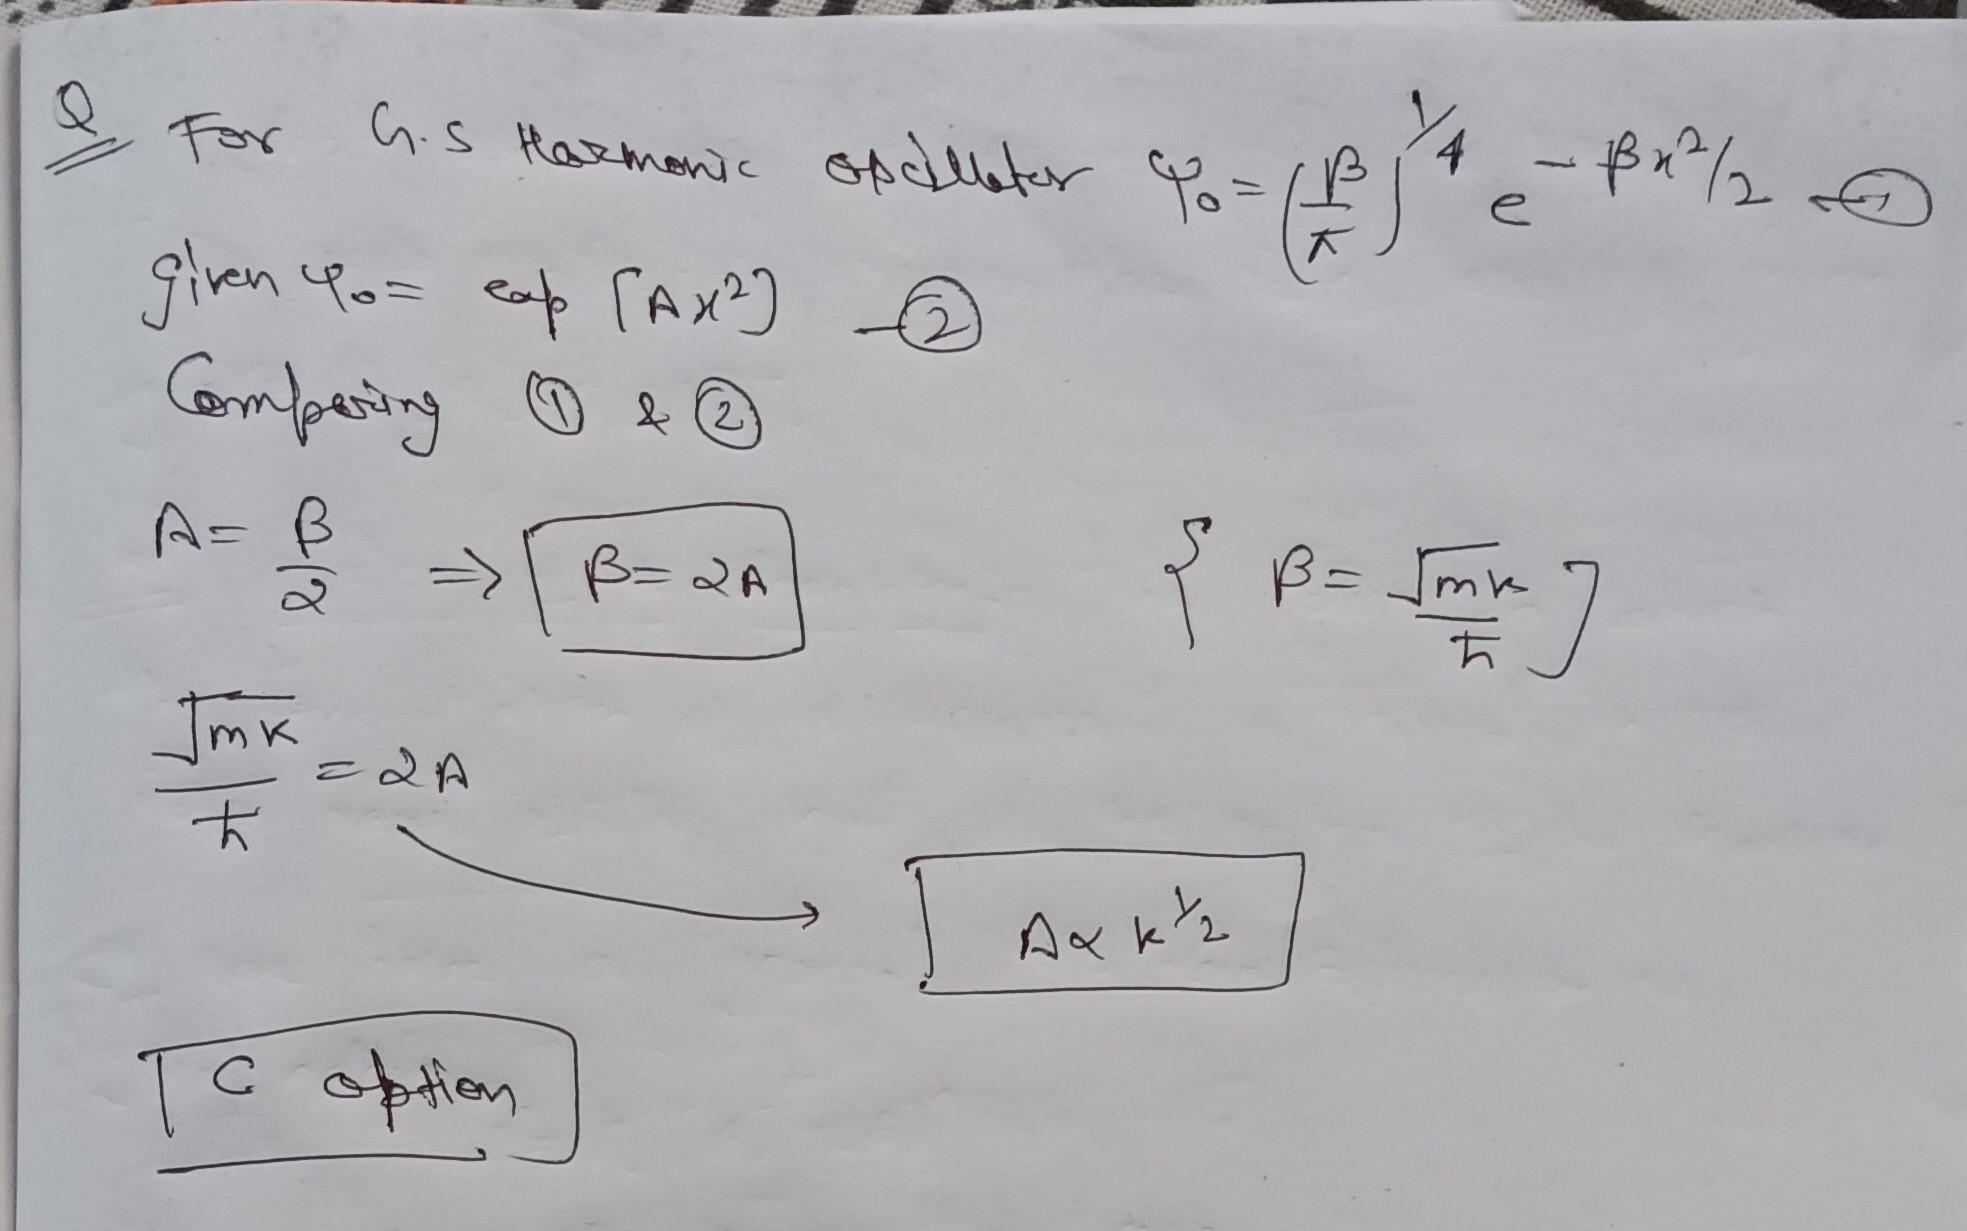 Q For G.S Harmonic oscillator φ₀ = (β/π)^1/4 e^-βx²/2 —①
given φ₀ = exp [Ax²] —②
Comparing ① & ②
A = β/2 ⇒ β = 2A { β = √mk/ħ ]
√mk/ħ = 2A
A ∝ k^1/2
C option